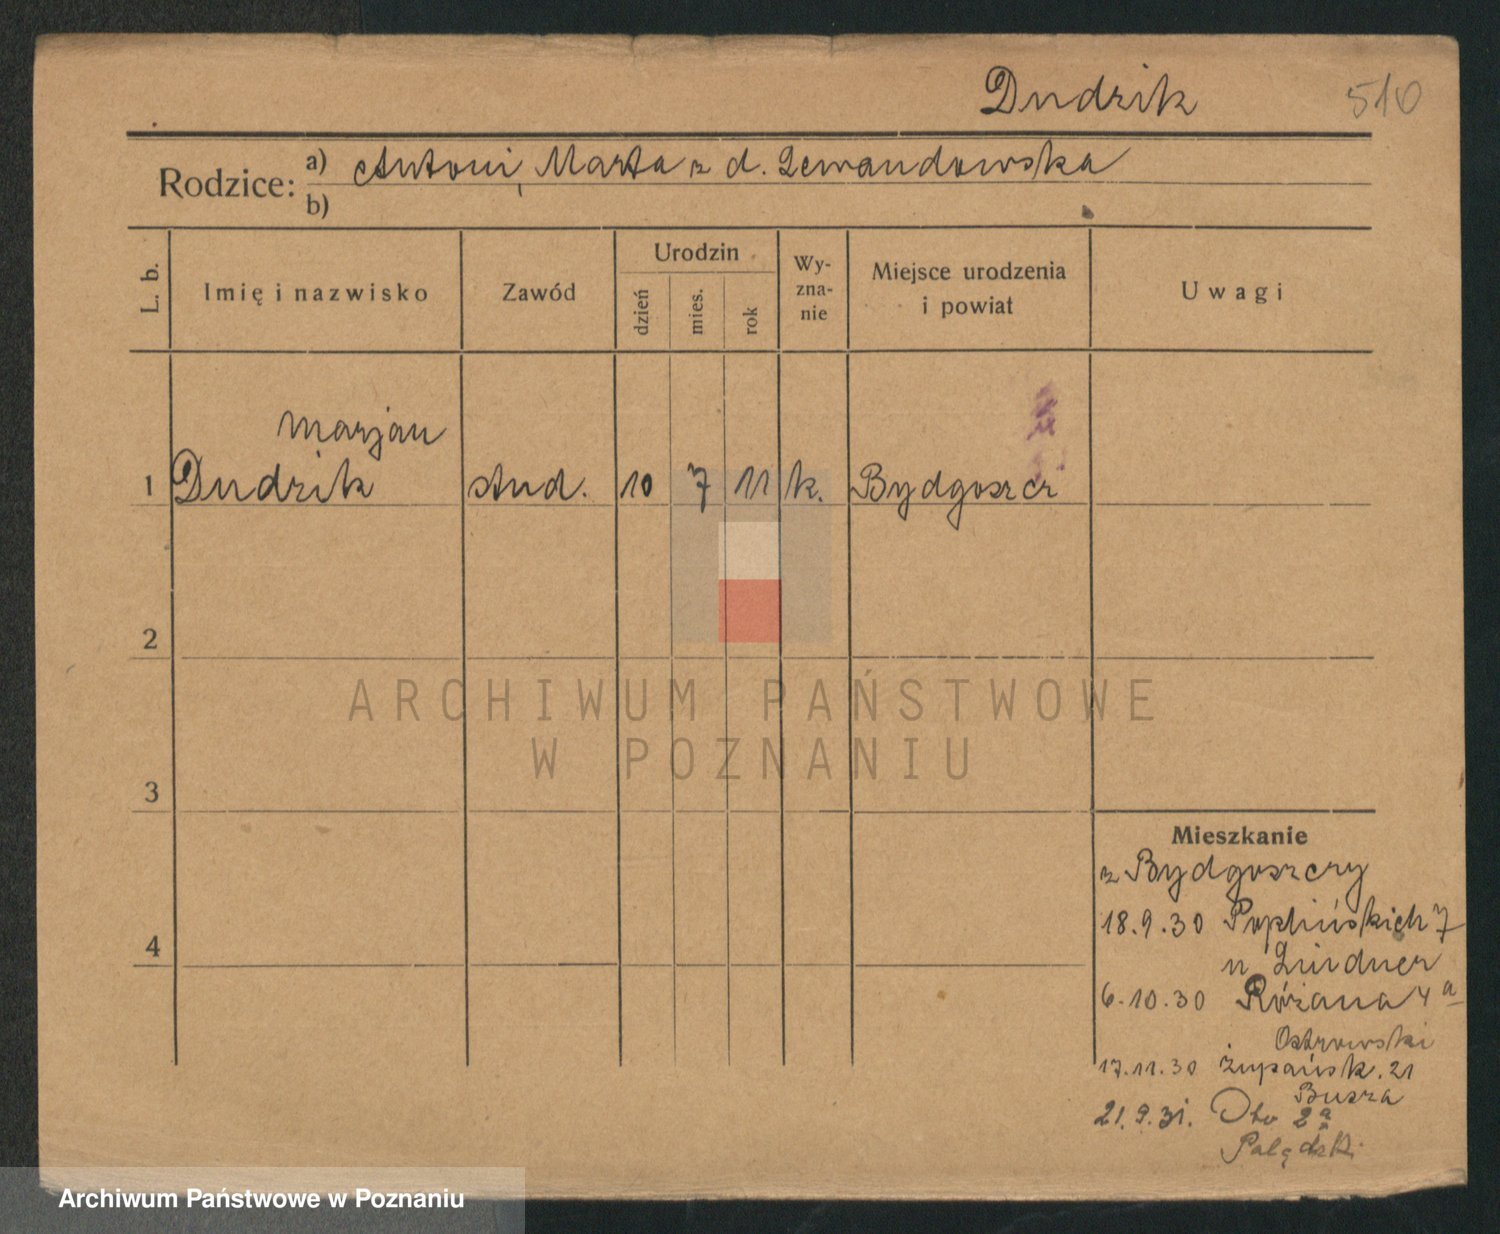 Dudzik 510
Rodzice: a) Antoni, Marta z d. Lewandowska
b)
L. b.
Imię i nazwisko
Zawód
Urodzin
dzień
mies.
rok
Wy-
zna-
nie
Miejsce urodzenia
i powiat
Uwagi
Marjan
1 Dudzik stud. 10 7 11 k. Bydgoszcz
2
3
4
Mieszkanie
z Bydgoszczy
18.9.30 Poplińskich 7
u Lindner
6.10.30 Różana 4a
Ostrowski
17.11.30 Żupańsk. 21
Busza
21.9.31.
ARCHIWUM PAŃSTWOWE
W POZNANIU
Archiwum Państwowe w Poznaniu